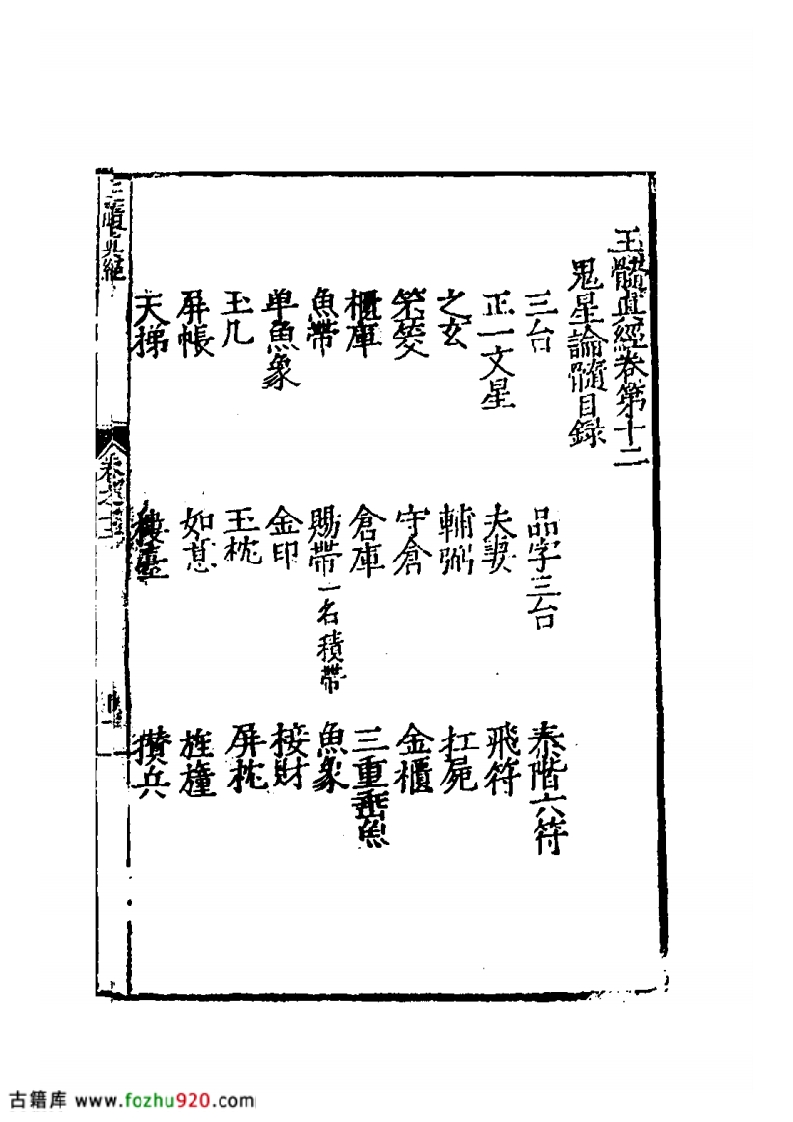 玉髓真經卷第十二
鬼星論髓目錄
三台 品字三台 泰階六符
正一文星 夫妻 飛符
之玄 輔弼 扛屍
筊 守倉 金櫃
櫃庫 倉庫 三重垂魚
魚帶 賜帶一名積帶 魚象
单魚象 金印 接財
玉几 玉枕 屏枕
屏帳 如意 旌幢
天梯 樓臺 攢兵
玉髓真經
古籍库 www.fozhu920.com